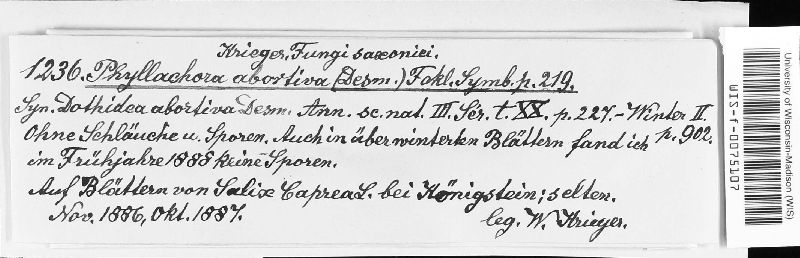 Krieger, Fungi saxonici.
1236. Phyllachora abortiva (Desm.) Fckl. Symb. p. 219.
Syn. Dothidea abortiva Desm. Ann. sc. nat. III. Sér. t. XX. p. 227. – Winter II. p. 902.
Ohne Schläuche u. Sporen. Auch in überwinterten Blättern fand ich
im Frühjahre 1888 keine Sporen.
Auf Blättern von Salix Caprea L. bei Königstein; selten.
Nov. 1886, Okt. 1887. leg. W. Krieger.
University of Wisconsin-Madison (WIS)
WIS-f-0075107